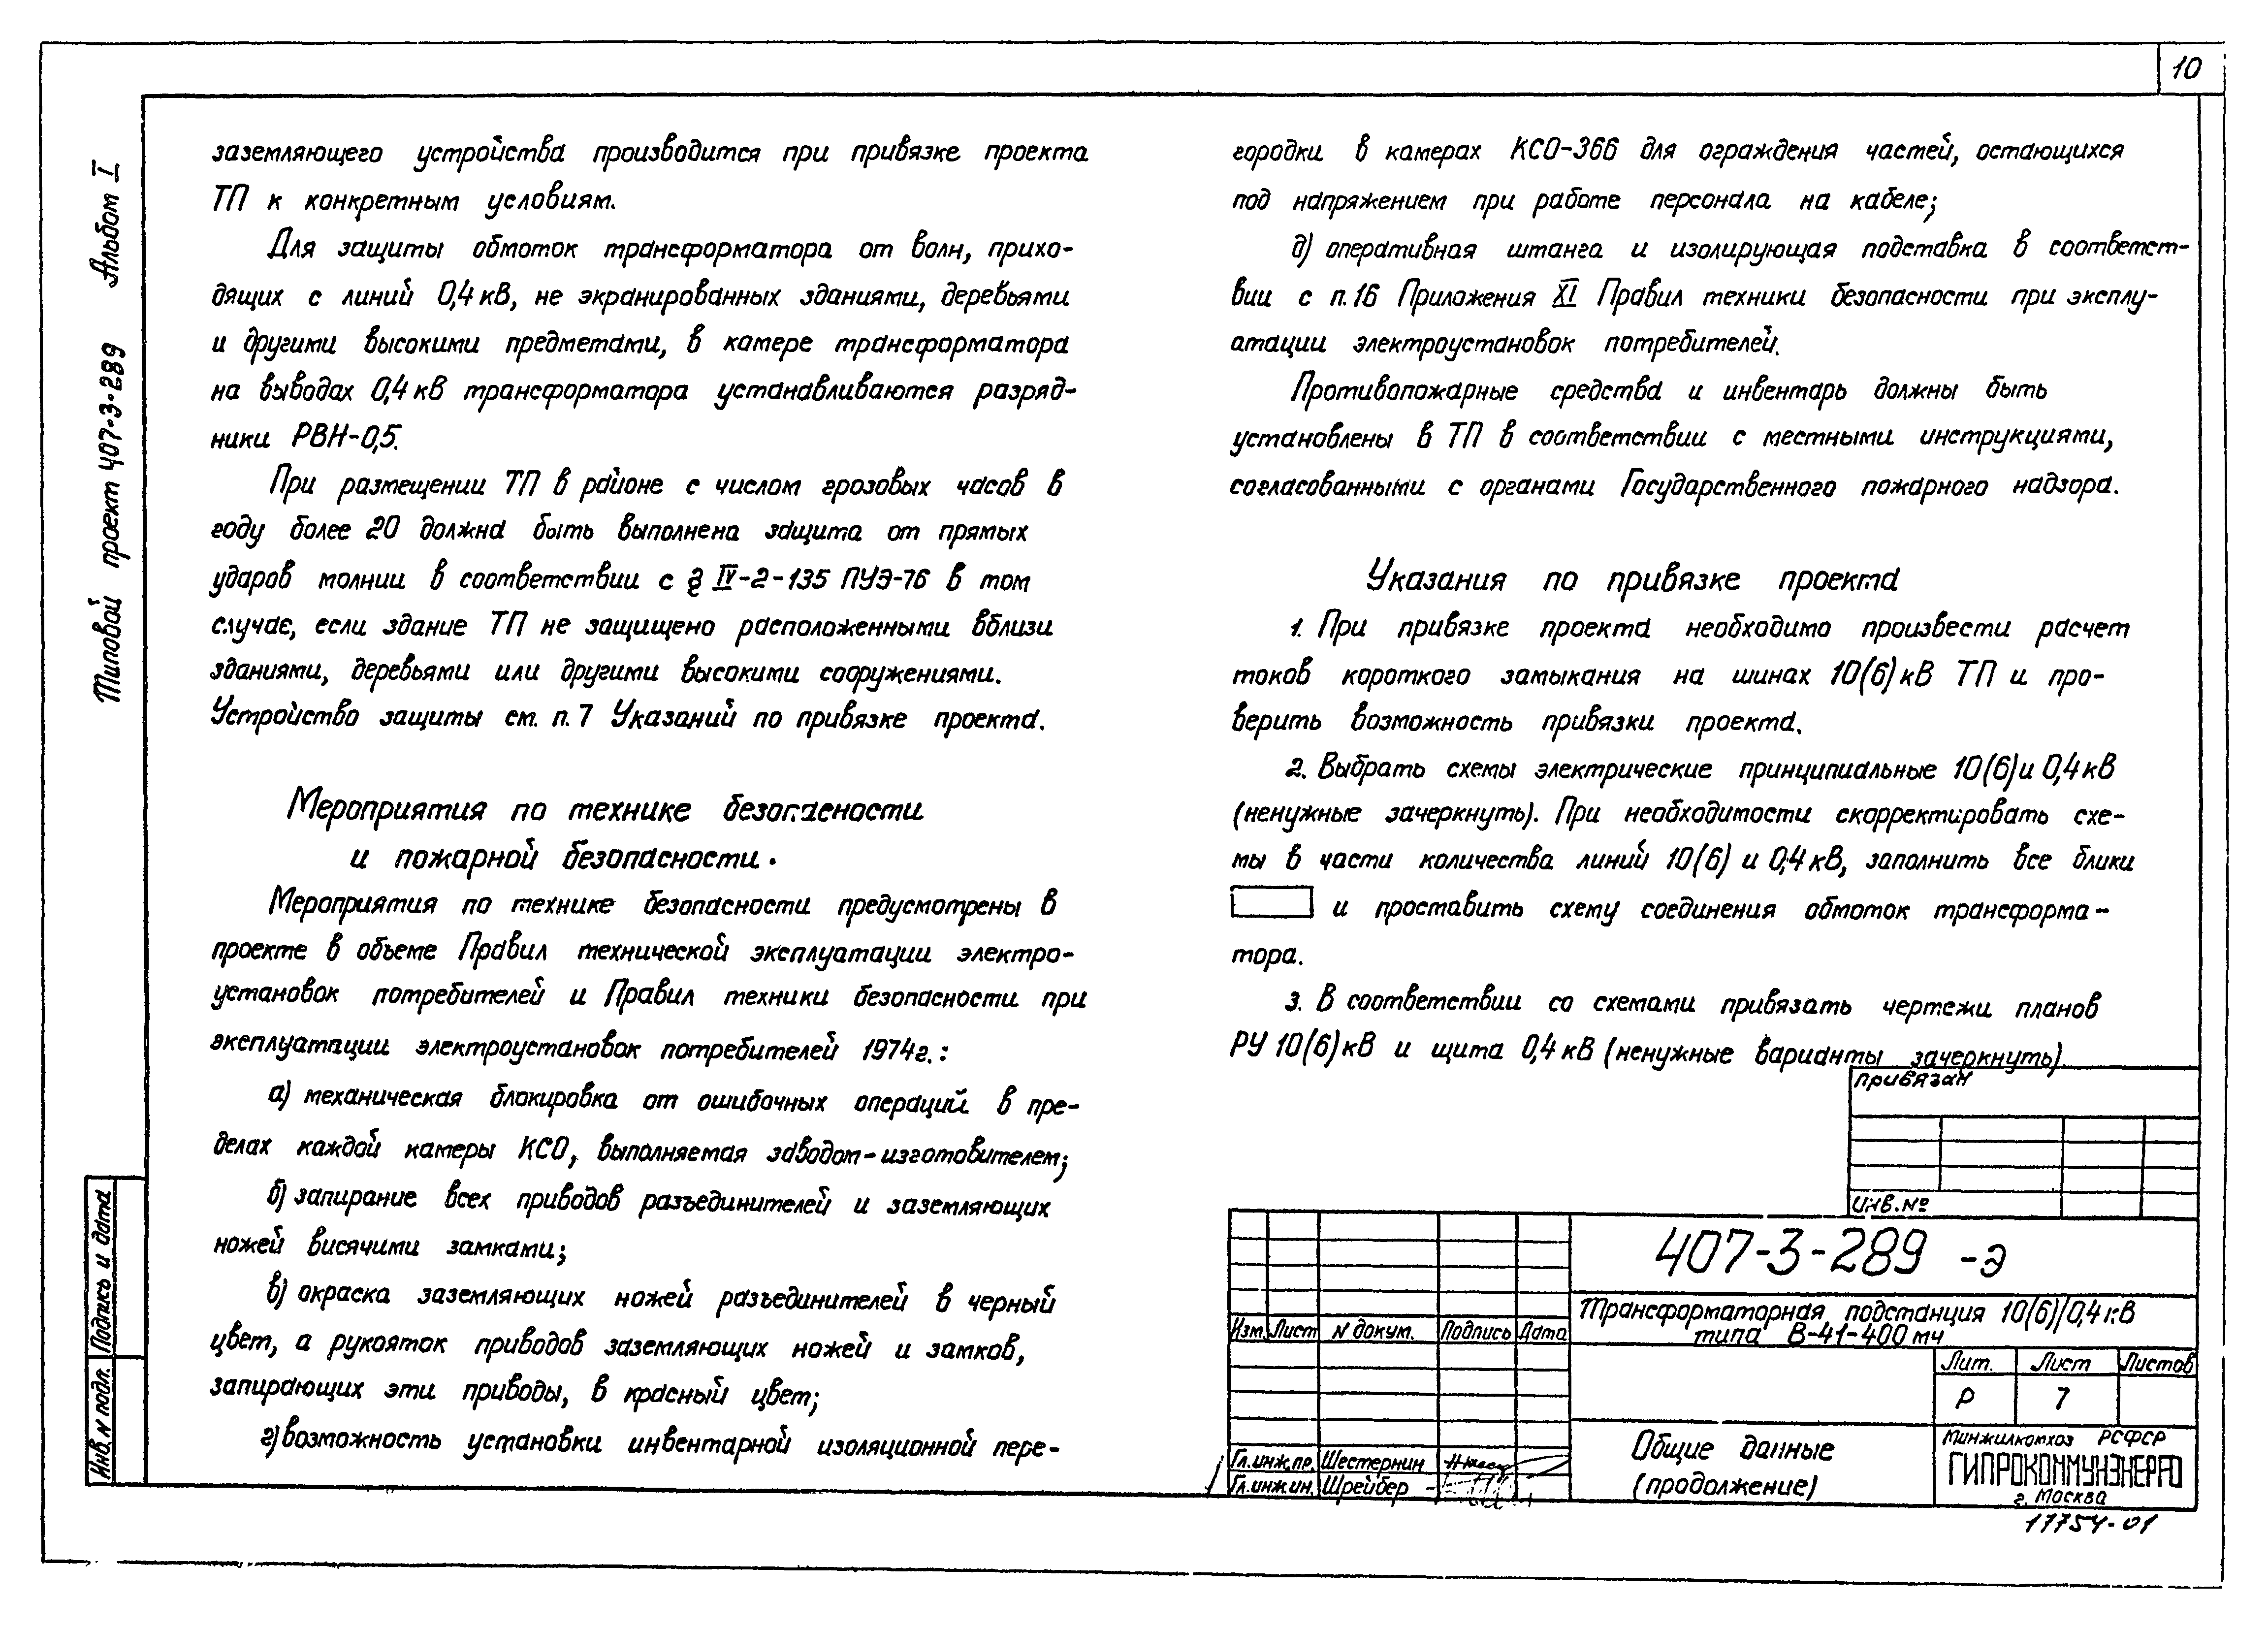 10
Типовой проект 407-3-289 Альбом I
заземляющего устройства производится при привязке проекта
ТП к конкретным условиям.
Для защиты обмоток трансформатора от волн, прихо-
дящих с линий 0,4 кВ, не экранированных зданиями, деревьями
и другими высокими предметами, в камере трансформатора
на выводах 0,4 кВ трансформатора устанавливаются разряд-
ники РВН-0,5.
При размещении ТП в районе с числом грозовых часов в
году более 20 должна быть выполнена защита от прямых
ударов молнии в соответствии с § IV-2-135 ПУЭ-76 в том
случае, если здание ТП не защищено расположенными вблизи
зданиями, деревьями или другими высокими сооружениями.
Устройство защиты см. п. 7 Указаний по привязке проекта.
Мероприятия по технике безопасности
и пожарной безопасности.
Мероприятия по технике безопасности предусмотрены в
проекте в объеме Правил технической эксплуатации электро-
установок потребителей и Правил техники безопасности при
эксплуатации электроустановок потребителей 1974г.:
а) механическая блокировка от ошибочных операций в пре-
делах каждой камеры КСО, выполняемая заводом-изготовителем;
б) запирание всех приводов разъединителей и заземляющих
ножей висячими замками;
в) окраска заземляющих ножей разъединителей в черный
цвет, а рукояток приводов заземляющих ножей и замков,
запирающих эти приводы, в красный цвет;
г) возможность установки инвентарной изоляционной пере-
городки в камерах КСО-366 для ограждения частей, остающихся
под напряжением при работе персонала на кабеле;
д) оперативная штанга и изолирующая подставка в соответст-
вии с п. 16 Приложения XI Правил техники безопасности при эксплу-
атации электроустановок потребителей.
Противопожарные средства и инвентарь должны быть
установлены в ТП в соответствии с местными инструкциями,
согласованными с органами Государственного пожарного надзора.
Указания по привязке проекта
1. При привязке проекта необходимо произвести расчет
токов короткого замыкания на шинах 10(6) кВ ТП и про-
верить возможность привязки проекта.
2. Выбрать схемы электрические принципиальные 10(6) и 0,4 кВ
(ненужные зачеркнуть). При необходимости скорректировать схе-
мы в части количества линий 10(6) и 0,4 кВ, заполнить все блики
и проставить схему соединения обмоток трансформа-
тора.
3. В соответствии со схемами привязать чертежи планов
РУ 10(6) кВ и щита 0,4 кВ (ненужные варианты зачеркнуть).
Привязан
Инв. №
407-3-289 -Э
Трансформаторная подстанция 10(6)/0,4 кВ
типа В-41-400 мч
Изм. Лист N докум. Подпись Дата
Лит. Лист Листов
Р 7
Общие данные
(продолжение)
Минжилкомхоз РСФСР
ГИПРОКОММУНЭНЕРГО
г. Москва
Гл.инж.пр. Шестернин
Гл.инж.ин. Шрейбер
17754-01
Подпись и дата
Инв. N подл.